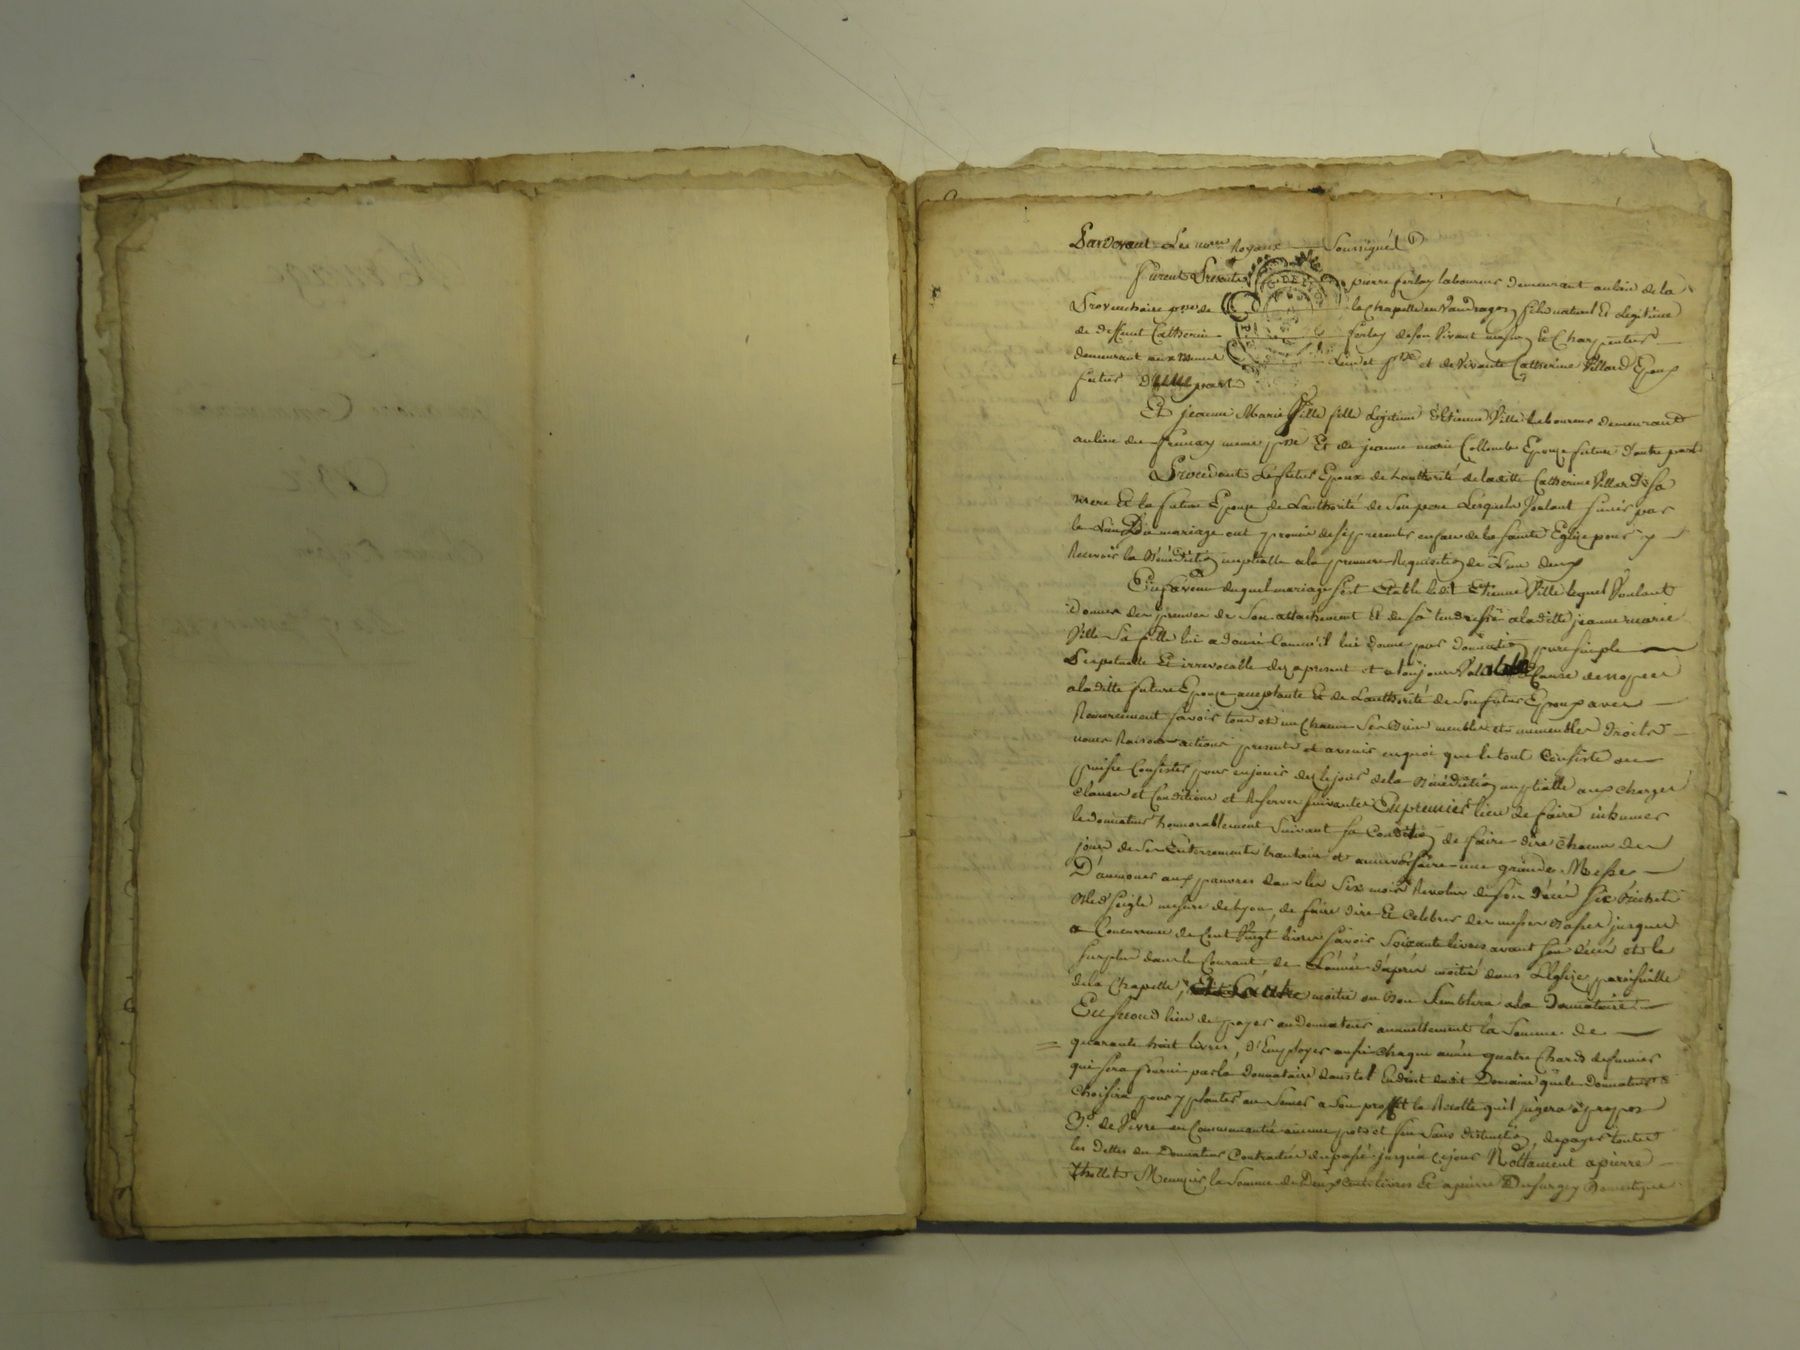 Pardevant Les nores Royaux soussignés
furent Présents pierre ferlay laboureur demeurant au lieu de la
Provenchaire psse de la Chapelle en Vaudragon fils naturel Et Legitime
de deffunt Catherin ferlay de son Vivant maitre Charpentier
demeurant aux Lieu et psse et de Vivante Catherine Villard Epoux
futur d'une part
Et jeanne Marie Ville fille Legitime d'Etienne Ville Laboureur demeurant
au lieu du même psse Et de jeanne marie Collombe Epouze future d'autre part
Procedants Le futur Epoux de Lauthorité de laditte Catherine Villard sa
mere Et la future Epouze de Lauthorité de son pere Lesquels Voulant s'unir par
le Lien Du mariage ont promis de se presenter en face de la sainte Eglise pour y
Recevoir la Bénédiction nuptialle a la premiere Requisition de L'un deux
En faveur duquel mariage s'est Etabli ledit Etienne Ville lequel Voulant
Donner des preuves de Son attachement Et de sa tendresse a laditte jeanne marie
Ville Sa fille lui a donné Comme il lui donne par donnation pure simple
Perpetuelle Et irrevocable des a present et a toujours Valable a Cause de nopces
a laditte future Epouze acceptante Et de Lauthorité de Son futur Epoux avec
Remerciement savoir tous et un Chacun Ses Biens meubles et immeubles droits
noms Raisons actions presents et avenir en quoi que le tout Consiste ou
puisse Consister pour en jouir des le jour de la Bénédiction nuptialle aux charges
clauses et Conditions et Reserves suivantes En premier lieu de faire inhumer
le donnateur honnorablement Suivant sa Condition de faire dire chacun des
jours de Ses Enterrements trantaine et anniversaire une grande Messe
D'aumoner aux pauvres dans les Six mois Revolus de son décés six Bichets
Bled Seigle mesure de Lyon, de faire dire Et Celebrer des messes Basses jusques
a Concurrence de Cent Vingt livres savoir Soixante livres avant son décés et le
surplus dans le Courant de L'année d'après moitié dans L'Eglise paroissialle
de la Chapelle, Et L'autre moitié ou Bon Semblera a la Donnataire
En second lieu de payer au donnateur annuellement la Somme de
quarante huit livres, d'Employer aussi chaque année quatre Chards de fumier
qui sera fourni par la donnataire dans tel Endroit dudit Domaine que le Donnateur
Choisira pour y planter ou Semer a Son proffit la Recolte qu'il jugera à propos
3° de Vivre en Communautté a meme pot et feu sans distinction, de payer toutes
les dettes du Donnateur Contractées du passé jusqu'a ce jour Nottament a pierre
Thollet Meunier la Somme de Deux Cents livres Et a pierre Dufurgey Domestique